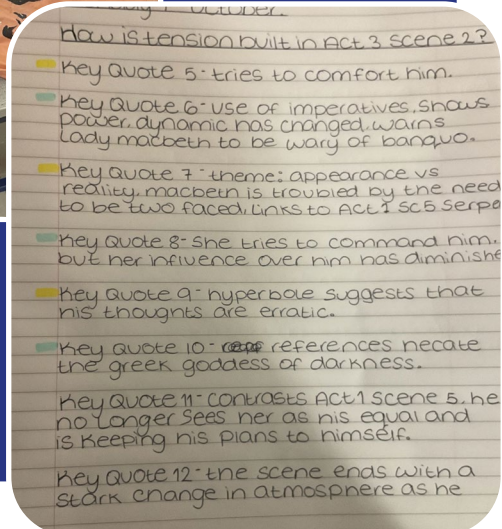 October.
How is tension built in Act 3 Scene 2?
Key Quote 5 - tries to comfort him.
Key Quote 6 - use of imperatives. Shows
power, dynamic has changed. warns
Lady macbeth to be wary of banquo.
Key Quote 7 - theme: appearance vs
reality. macbeth is troubled by the need
to be two faced. Links to Act 1 SC5 Serpe
Key Quote 8 - she tries to command him.
but her influence over him has diminishe
Key Quote 9 - hyperbole suggests that
his thoughts are erratic.
Key Quote 10 - references hecate
the greek goddess of darkness.
Key Quote 11 - contrasts Act 1 Scene 5. he
no longer sees her as his equal and
is keeping his plans to himself.
Key Quote 12 - the scene ends with a
stark change in atmosphere as he